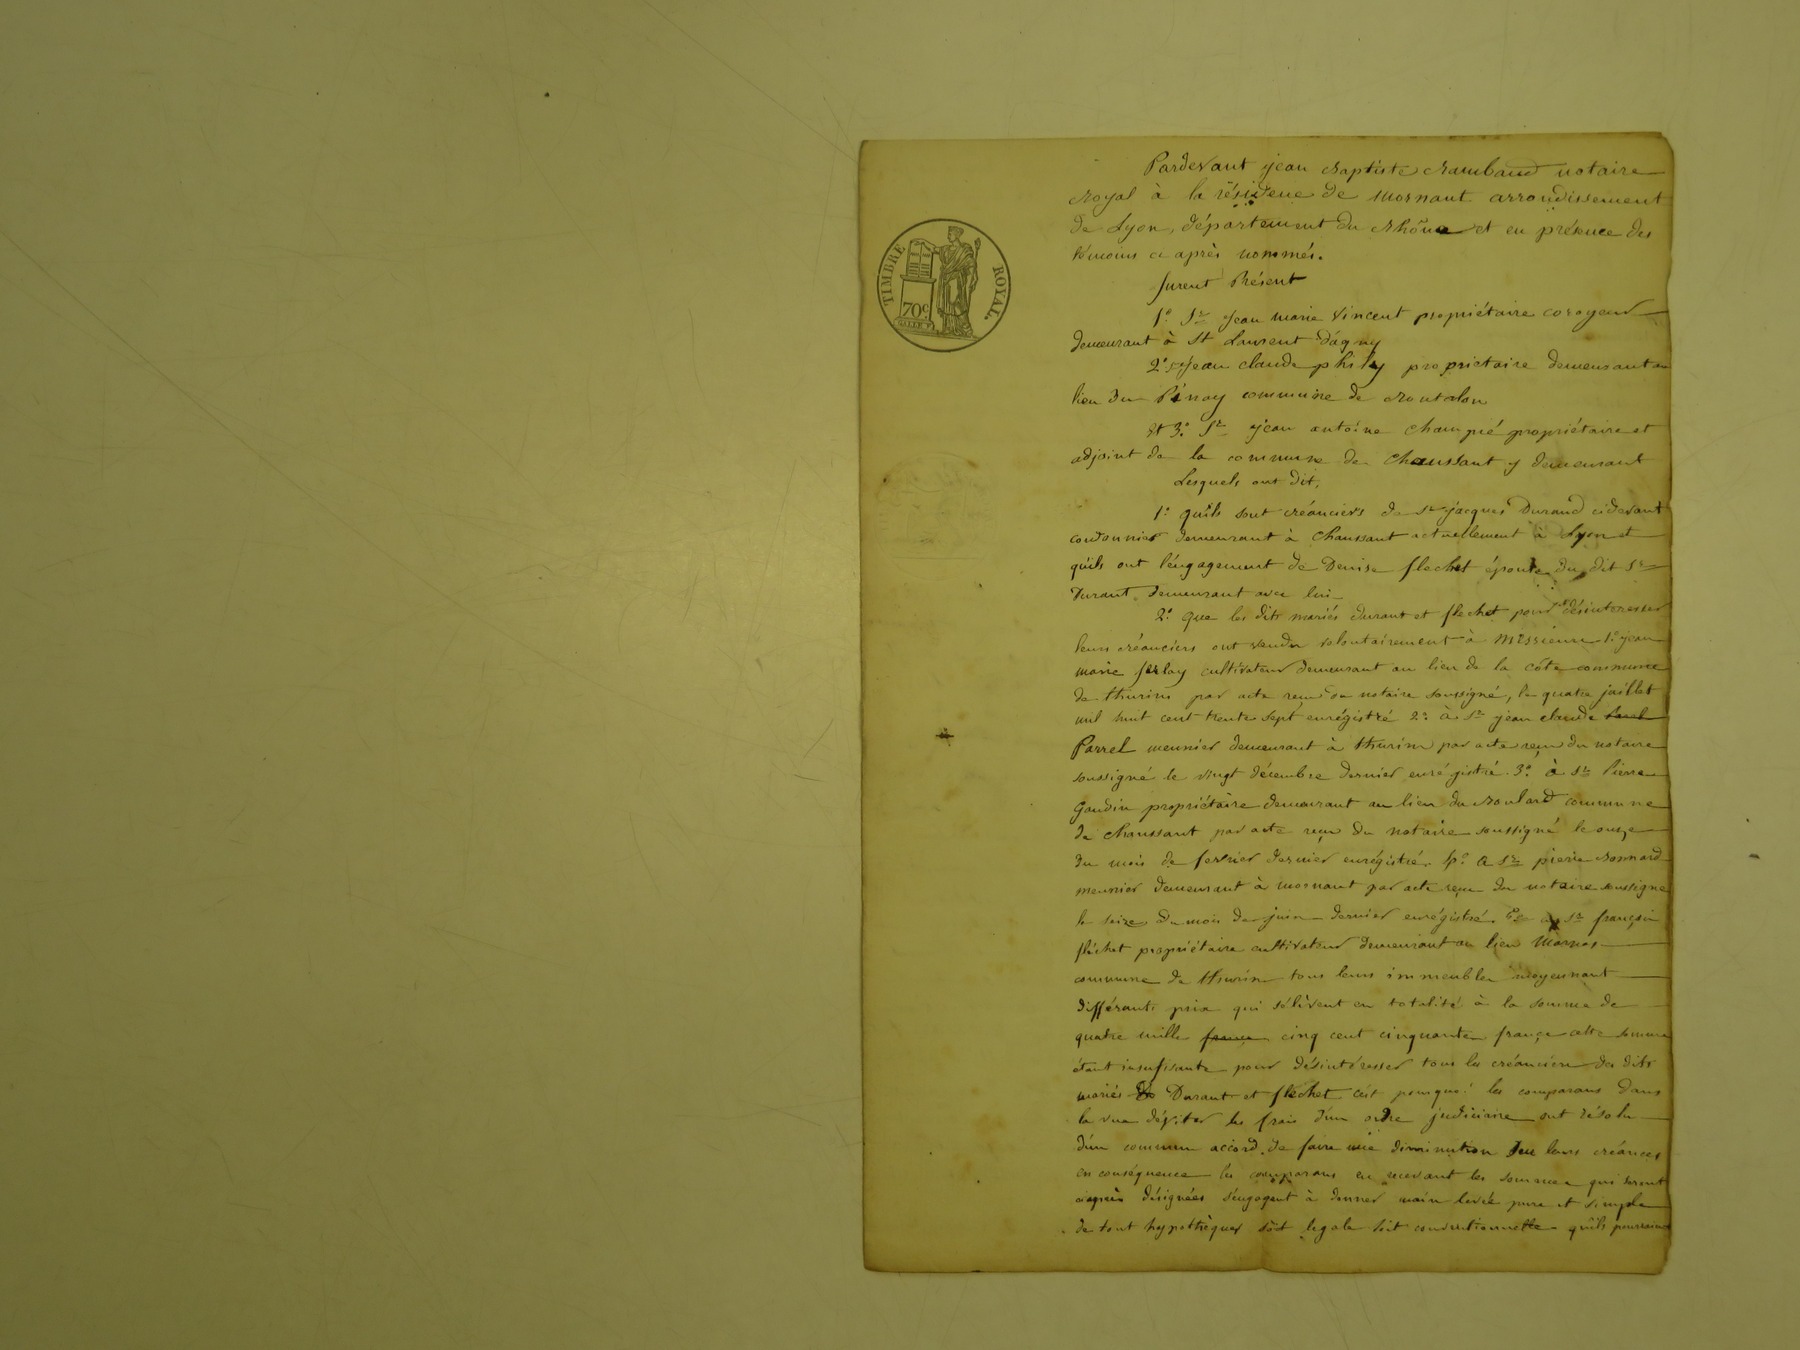 TIMBRE ROYAL.
70c
Pardevant jean Baptiste Rambaud notaire
Royal à la résidence de Mornant arrondissement
de Lyon, département du Rhône et en présence des
témoins ci après nommés.
furent Présent
1º Sr Jean marie Vincent propriétaire coroyeur
demeurant à St Laurent d'agny
2º Sr Jean claude phily propriétaire demeurant au
lieu du Pinay commune de Rontalon
Et 3º Sr jean antoine Champié propriétaire et
adjoint de la commune de Chaussant y demeurant
Lesquels ont dit,
1º qu'ils sont créanciers de Sr jacques Durand cidevant
cordonnier demeurant à Chaussant actuellement à Lyon et
qu'ils ont l'engagement de Denise flechet épouse du dit Sr
Durant demeurant avec lui
2º que les dits mariés durant et flechet pour désinteresser
leurs créanciers ont vendu volontairement à Messieurs 1º jean
marie ferlay cultivateur demeurant au lieu de la côte commune
de thurins par acte reçu du notaire soussigné, le quatre juillet
mil huit cent trente sept enrégistré 2º à Sr jean claude
Parrel meunier demeurant à thurins par acte reçu du notaire
soussigné le vingt décembre dernier enrégistré. 3º à Sr Pierre
Gaudin propriétaire demeurant au lieu du Moulard commune
de Chaussant par acte reçu du notaire soussigné le onze
du mois de fevrier dernier enrégistré. 4º à Sr pierre Bonnard
meunier demeurant à mornant par acte reçu du notaire soussigne
le seize du mois de juin dernier enrégistré. à Sr françois
fléchet propriétaire cultivateur demeurant au lieu Marnas
commune de thurins tous leurs immeubles moyennant
différants prix qui s'élèvent en totalité à la somme de
quatre mille francs cinq cent cinquante françs cette somme
étant insufisante pour désintéresser tous les créanciers des dits
mariés Durant et flechet c'est pourquoi les comparans dans
la vue déviter les frais d'un ordre judiciaire ont résolu
d'un commun accord de faire une diminution sur leurs créances
en conséquence les comparans en recevant les sommes qui seront
ciaprès désignées s'engagent à donner main levée pure et simple
de tout hypothèques soit legale soit conventionnelle qu'ils pourraient